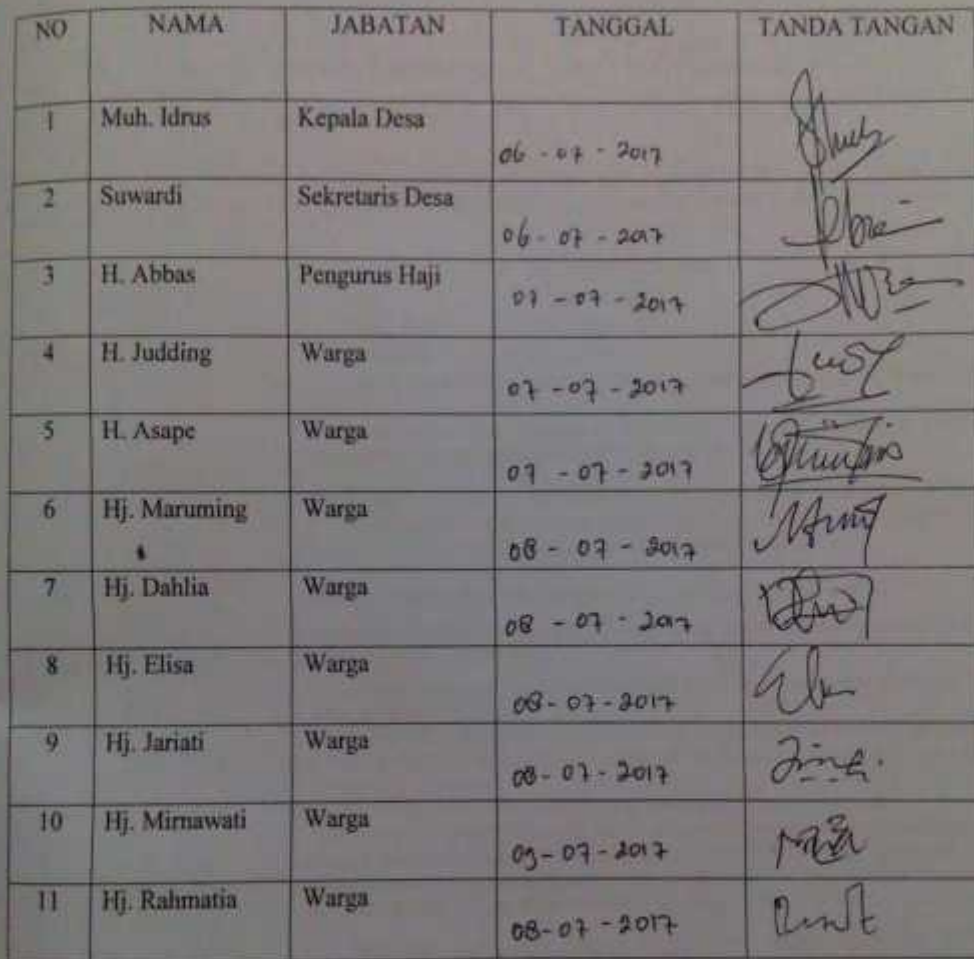 NO NAMA JABATAN TANGGAL TANDA TANGAN
1 Muh. Idrus Kepala Desa 06 - 07 - 2017
2 Suwardi Sekretaris Desa 06 - 07 - 2017
3 H. Abbas Pengurus Haji 07 - 07 - 2017
4 H. Judding Warga 07 - 07 - 2017
5 H. Asape Warga 07 - 07 - 2017
6 Hj. Maruming Warga 08 - 07 - 2017
7 Hj. Dahlia Warga 08 - 07 - 2017
8 Hj. Elisa Warga 08 - 07 - 2017
9 Hj. Jariati Warga 08 - 07 - 2017
10 Hj. Mirnawati Warga 09 - 07 - 2017
11 Hj. Rahmatia Warga 08 - 07 - 2017